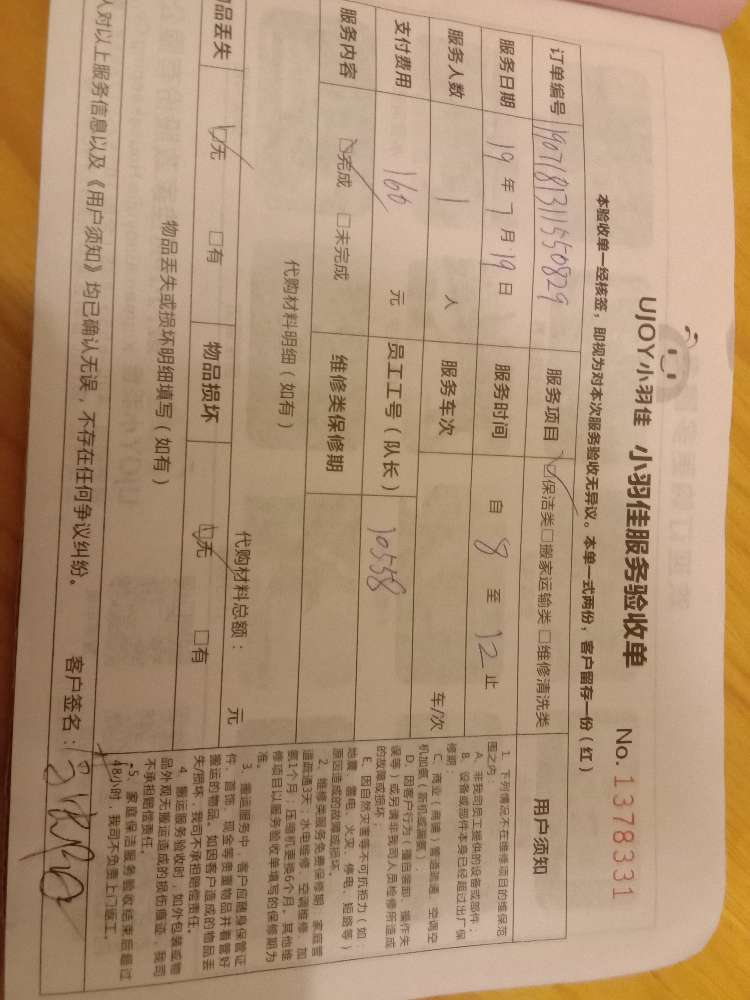 UJOY小羽佳 小羽佳服务验收单 No. 1378331
本验收单一经核签，即视为对本次服务验收无异议。本单一式两份，客户留存一份（红）
订单编号 1907181311550829 服务项目 ☑保洁类□搬家运输类□维修清洗类
服务日期 19 年 7 月 19 日 服务时间 自 8 至 12 止
服务人数 1 人 服务车次 车/次
支付费用 160 元 员工工号（队长） 10558
服务内容 ☑完成 □未完成 维修类保修期
代购材料明细（如有）
代购材料总额： 元
物品丢失 ☑无 □有 物品损坏 ☑无 □有
物品丢失或损坏明细填写（如有）
人对以上服务信息以及《用户须知》均已确认无误，不存在任何争议纠纷。 客户签名：
用户须知
1、下列情况不在维修项目的维保范
围之内：
A、非我司员工提供的设备或部件；
B、设备或部件本身已经超过出厂保
修期；
C、商业（商铺）管道疏通、空调空
机加氨（新机或漏氨）；
D、因客户行为（擅自装卸、操作失
误等）或另请非我司人员检修所造成
的故障或损坏
E、因自然灾害等不可抗拒力（如：
地震、雷电、火灾、停电、短路等）
原因造成的故障或损坏。
2、维修类服务免费保修期：家庭管
道疏通3天；水电维修、空调维修、加
氨1个月；压缩机更换6个月。其他维
修项目以服务验收单填写的保修期为
准。
3、搬运服务中，客户应随身保管证
件、首饰、现金等贵重物品并看管好
搬运的物品，如因客户造成的物品丢
失/损坏，我司不承担赔偿责任。
4、搬运服务验收时，如外包装或物
品外观无搬运造成的损伤痕迹，我司
不承担赔偿责任。
5、家庭保洁服务验收结束后超过
48小时，我司不负责上门返工。